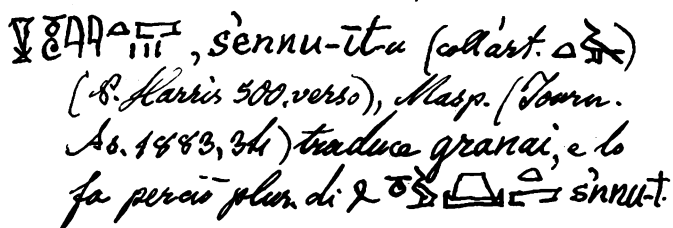 , šennu-īt-u (coll'art. )
(P. Harris 500. verso), Masp. (Journ.
As. 1883, 34) traduce granai, e lo
fa perciò plur. di šnnu-t.